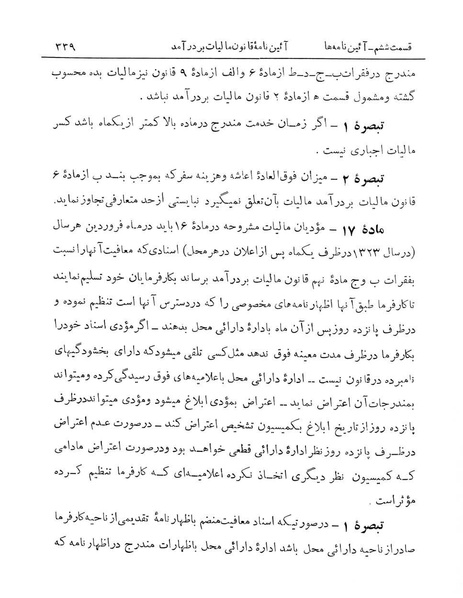 قسمت ششم ـ آئین نامه‌ها آئین نامهٔ قانون مالیات بر درآمد ۳۳۹
مندرج در فقرات ب ـ ج ـ د ـ ط از مادهٔ ۶ و الف از مادهٔ ۹ قانون نیز مالیات بده محسوب
گشته و مشمول قسمت ه از مادهٔ ۲ قانون مالیات بر درآمد نباشد .
تبصرهٔ ۱ ـ اگر زمان خدمت مندرج در ماده بالا کمتر از یکماه باشد کسر
مالیات اجباری نیست .
تبصرهٔ ۲ ـ میزان فوق العادهٔ اعاشه و هزینه سفر که بموجب بند ب از مادهٔ ۶
قانون مالیات بر درآمد مالیات بآن تعلق نمیگیرد نبایستی از حد متعارفی تجاوز نماید.
مادهٔ ۱۷ ـ مؤدیان مالیات مشروحه در مادهٔ ۱۶ باید در ماه فروردین هر سال
(در سال ۱۳۲۳ در ظرف یکماه پس از اعلان در هر محل) اسنادی که معافیت آنها را نسبت
بفقرات ب و ج مادهٔ نهم قانون مالیات بر درآمد برساند بکارفرمایان خود تسلیم نمایند
تا کارفرما طبق آنها اظهارنامه‌های مخصوصی را که در دسترس آنها است تنظیم نموده و
در ظرف پانزده روز پس از آن ماه باداره دارائی محل بدهند ـ اگر مؤدی اسناد خود را
بکارفرما در ظرف مدت معینه فوق ندهد مثل کسی تلقی میشود که دارای بخشودگیهای
نامبرده در قانون نیست ــ ادارهٔ دارائی محل باعلامیه‌های فوق رسیدگی کرده و میتواند
بمندرجات آن اعتراض نماید ــ اعتراض بمؤدی ابلاغ میشود و مؤدی میتواند در ظرف
پانزده روز از تاریخ ابلاغ بکمیسیون تشخیص اعتراض کند ـ در صورت عدم اعتراض
در ظرف پانزده روز نظر ادارهٔ دارائی قطعی خواهد بود و در صورت اعتراض مادامی
که کمیسیون نظر دیگری اتخاذ نکرده اعلامیه‌ای که کارفرما تنظیم کرده
مؤثر است .
تبصرهٔ ۱ ـ در صورتیکه اسناد معافیت منضم باظهارنامهٔ تقدیمی از ناحیه کارفرما
صادر از ناحیه دارائی محل باشد ادارهٔ دارائی محل باظهارات مندرج در اظهارنامه که